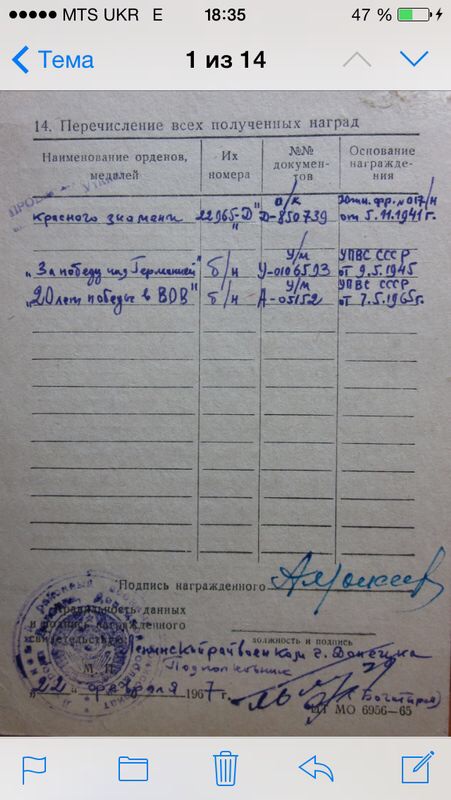 MTS UKR E 18:35 47 %
Тема 1 из 14
14. Перечисление всех полученных наград
Наименование орденов, медалей Их номера №№ документов Основание награждения
о/к Южн. фр. № 017/н
Красного знамени 22965-Д" Д-850739 от 5.11.1941г.
у/м УПВС СССР
„За победу над Германией" б/н У-0106593 от 9.5.1945
у/м УПВС СССР
„20 лет победы в ВОВ" б/н А-05152 от 7.5.1965г.
Подпись награжденного
Правильность данных
и подпись награжденного
свидетельствую:
должность и подпись
райвоенком г. Донецка
Подполковник
М. П.
„22" февраля 1967 г.
МО 6956—65